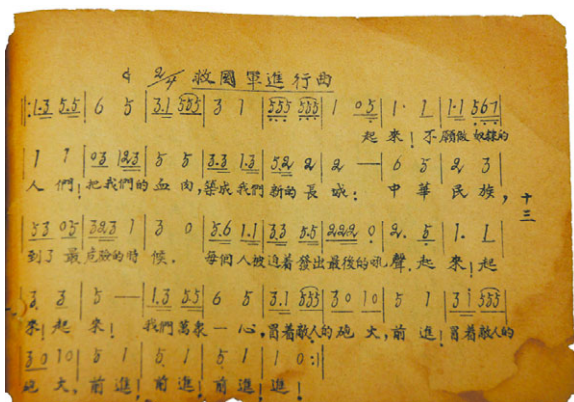 2/4 救國軍進行曲
‖:1·3 5·5 | 6 5 | 3·1 555 | 3 1 | 555 555 | 1 05 | 1· 1 | 1·1 567 |
起來!不願做奴隸的
1 1 | 03 123 | 5 5 | 3·3 1·3 | 5·2 2 | 2 — | 6 5 | 2 3 |
人們!把我們的血肉,築成我們新的長城:中華民族,
十三
53 05 | 323 1 | 3 0 | 5·6 1·1 | 3·3 5·5 | 222 0 | 2· 5 | 1· 1 |
到了最危險的時候.每個人被迫着發出最後的吼聲.起來!起
3· 3 | 5 — | 1·3 5·5 | 6 5 | 3·1 555 | 30 10 | 5 1 | 3·1 555 |
來!起來!我們萬衆一心,冒着敵人的砲火,前進!冒着敵人的
30 10 | 5 1 | 5 1 | 5 1 | 1 0 :‖
砲火,前進!前進!前進!進!